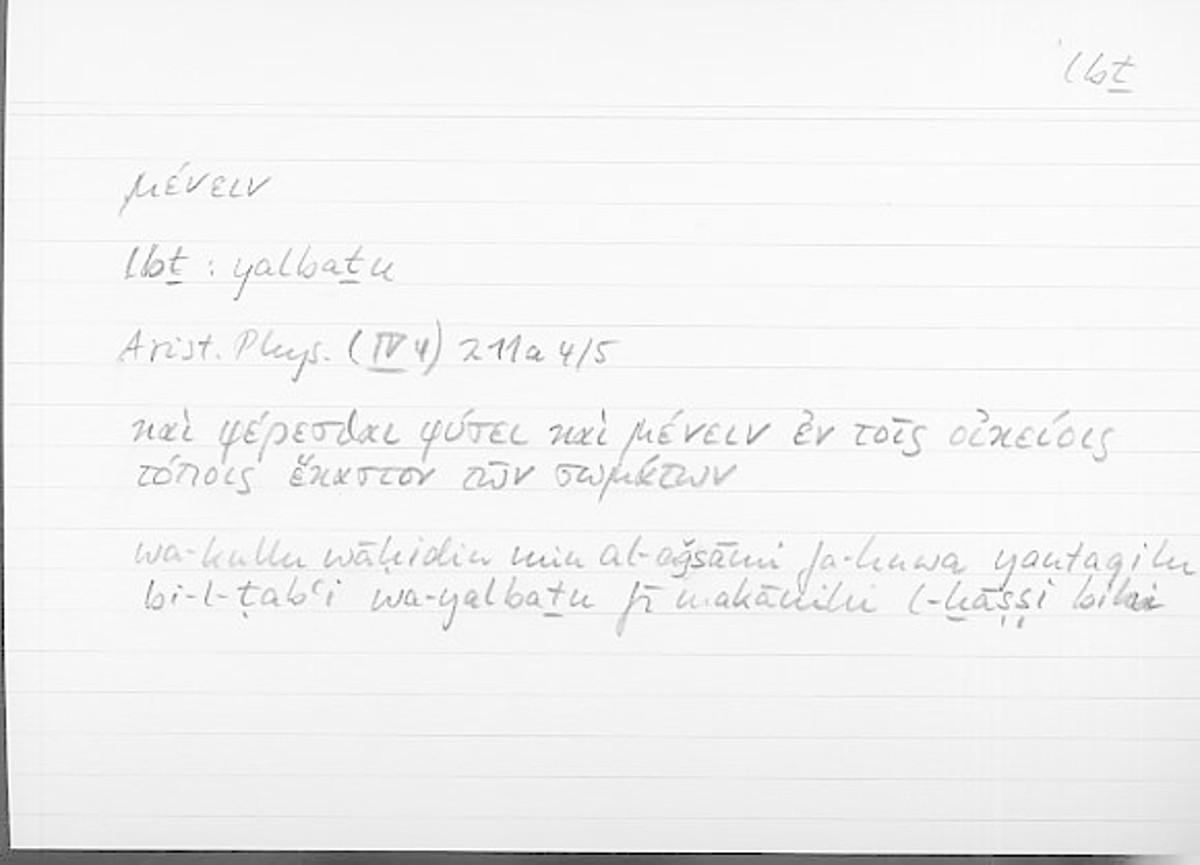 lbṯ
μένειν
lbṯ : yalbaṯu
Arist. Phys. (IV 4) 211a 4/5
καὶ φέρεσθαι φύσει καὶ μένειν ἐν τοῖς οἰκείοις
τόποις ἕκαστον τῶν σωμάτων
wa-kullu wāḥidin min al-aǧsāmi fa-huwa yantaqilu
bi-l-ṭabʿi wa-yalbaṯu fī makānihi l-ḫāṣṣi bihi